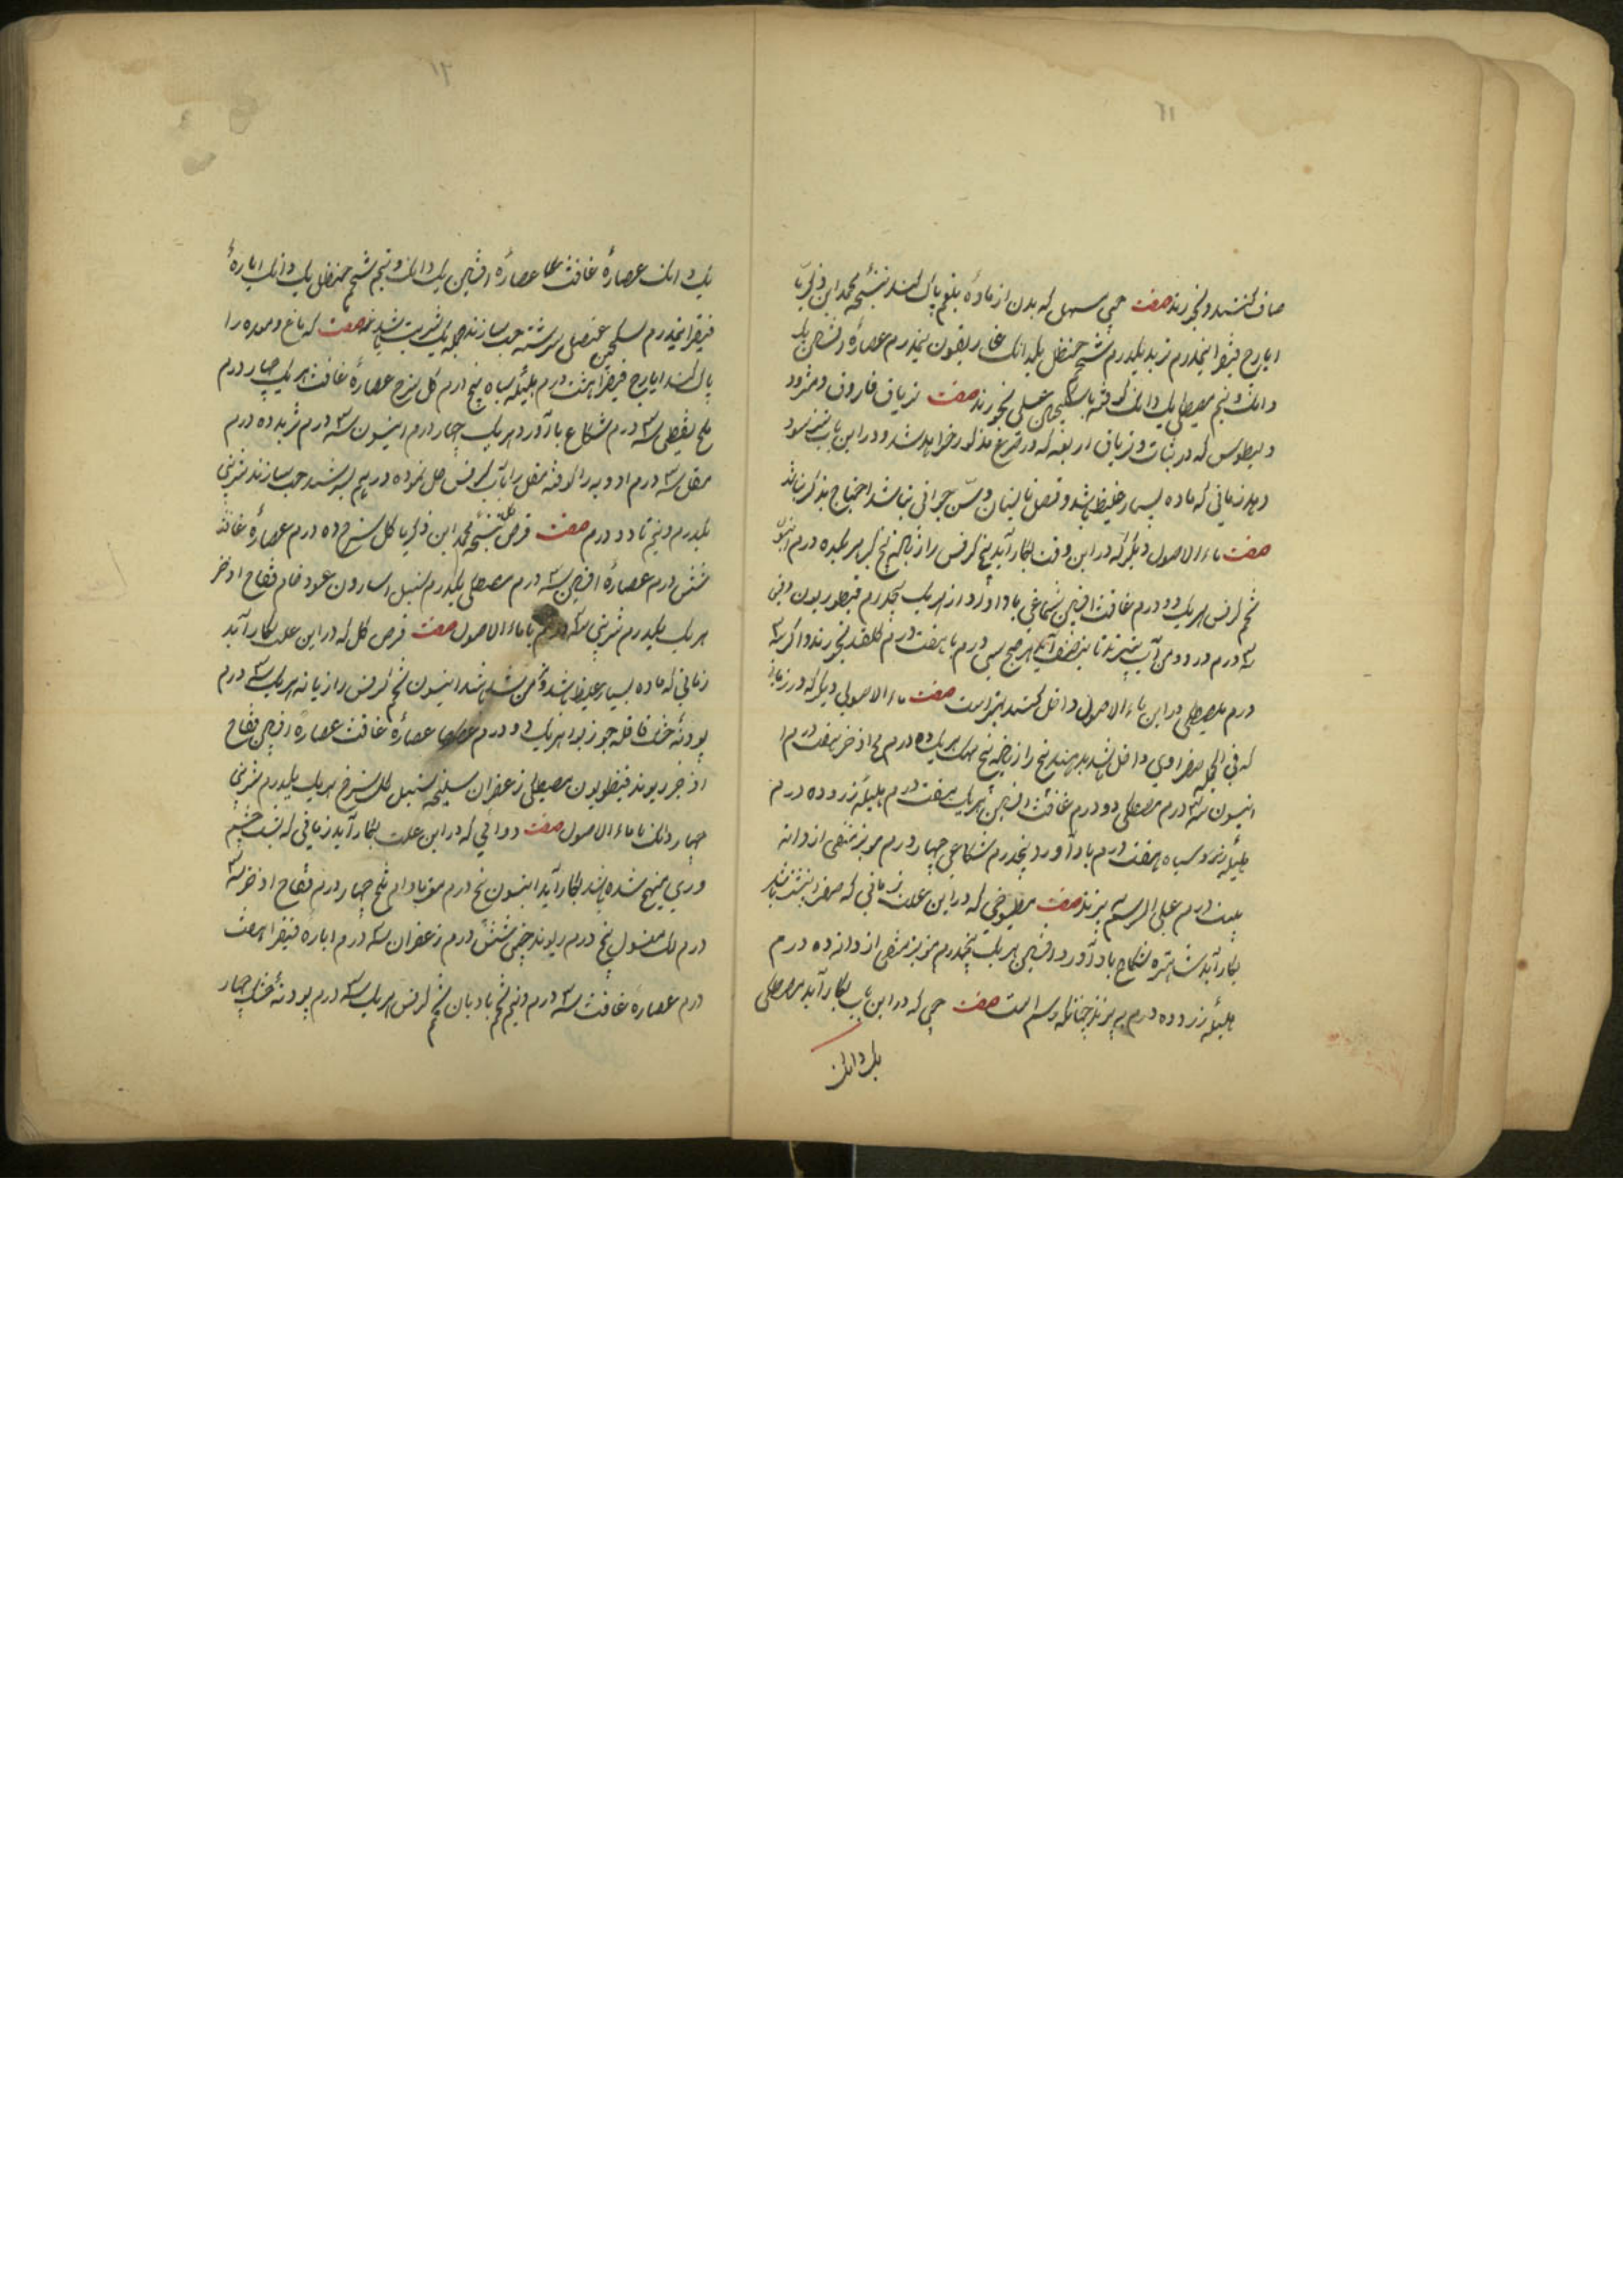 ۱۱
صاف کنند و بخورند صفت حبی مسهل که بدن از مادهٔ بلغم پاک کند نسخهٔ محمد ابن زکریا
ایارج فیقرا نیمدرم تربد یکدرم شحم حنظل یکدانک غاریقون نیمدرم عصارهٔ افسنتین یک
دانک و نیم مصطکی یک دانک کوفته با سکنجبین عسلی بخورند صفت تریاق فاروق و مثرود
دیطوس که در و تریاق اربعه که در مذکور خواهد شد و در این باب سود
دهد زمانی که ماده بسیار غلیظ باشد و فصل تابستان و سن جوانی نباشد احتیاج بذکر نباشد
صفت ماء الاصول دیگر که در این وقت بکار آید بیخ کرفس رازیانه بیخ کبر هر یک ده درم انیسون
تخم کرفس هر یک دو درم غافث افسنتین شکاعی باداورد از هر یک پنجدرم قنطوریون
سه درم در دو من آب بپزند تا بنصف آید هر صبح سی درم با هفت درم گلقند بخورند و اگر سه
درم مصطکی در این ماء الاصول داخل کنند بهتر است صفت ماء الاصولی دیگر که در زمانی
که فی الجمله صفراوی داخل باشد بدهند بیخ رازیانه بیخ مهک هر یک ده درم اذخر هفت درم
انیسون سه درم مصطکی دو درم غافث افسنتین هر یک هفت درم هلیله زرد ده درم
هلیله سیاه هفت درم باداورد پنجدرم شکاعی چهار درم مویز منقی از دانه
بیست درم علی الرسم بپزند صفت مطبوخی که در این علت زمانی که صفرا بیشتر باشد
بکار آید شاهتره شکاع باداورد افسنتین هر یک پنجدرم مویز منقی از دانه ده درم
هلیله زرد ده درم بپزند چنانکه رسم است صفت حبی که در این باب بکار آید مصطکی
یک دانک
۱۲
یک دانک عصارهٔ غافث عصارهٔ افسنتین یک دانک و نیم شحم حنظل یک دانک ایارهٔ
فیقرا نیمدرم سکنجبین عنصلی سرشته حب سازند جمله یک شربت باشد صفت که دماغ و معده را
پاک کند ایارج فیقرا هشت درم هلیله سیاه پنج درم گل سرخ عصارهٔ غافث هر یک چهار درم
ملح نفطی سه درم شکاع باداورد هر یک چهار درم انیسون سه درم تربد ده درم
مقل سه درم ادویه را کوفته مقل را بآب کرفس حل نموده در هم بسرشند حب سازند شربتی
یکدرم و نیم تا دو درم صفت قرص گل نسخهٔ محمد ابن زکریا گل سرخ ده درم عصارهٔ غافث
شش درم عصارهٔ افسنتین سه درم مصطکی یکدرم سنبل اسارون عود خام فقاح اذخر
هر یک یکدرم شربتی سه درم با ماء الاصول صفت قرص گل که در این علت بکار آید
زمانی که ماده بسیار غلیظ باشد و کهن شده باشد انیسون تخم کرفس رازیانه هر یک سه درم
پودنهٔ خشک قاقله جوزبوا هر یک دو درم عصارهٔ غافث عصارهٔ افسنتین فقاح
اذخر ریوند قنطوریون مصطکی زعفران سلیخه سنبل گل سرخ هر یک یکدرم شربتی
چهار دانک با ماء الاصول صفت دوائی که در این علت بکار آید زمانی که پشت چشم
و روی متهیج شده باشد بکار آید انیسون پنج درم مغز بادام تلخ چهار درم فقاح اذخر سه
درم لک مغسول پنج درم ریوند چینی شش درم زعفران سه درم ایارهٔ فیقرا هشت
درم عصارهٔ غافث سه درم و نیم تخم بادیان تخم کرفس هر یک سه درم پودنهٔ خشک چهار